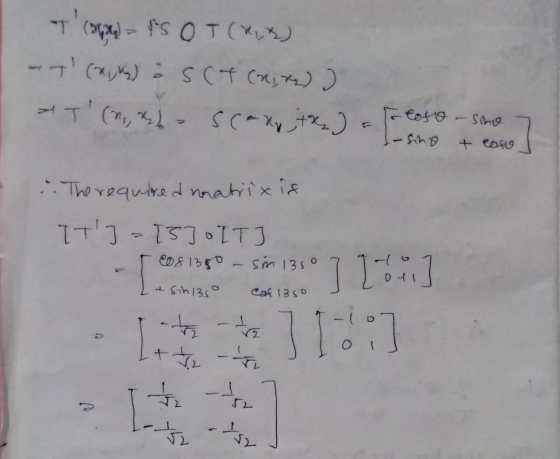 T'(x₁,x₂) = S O T(x₁,x₂)
→ T'(x₁,x₂) = S(T(x₁,x₂))
→ T'(x₁,x₂) = S(-x₁,+x₂) = [-cosθ -sinθ
-sinθ + cosθ]
∴ The required matrix is
[T'] = [S] o [T]
= [cos 135° - sin 135°
+ sin 135° cos 135°] [-1 0
0 +1]
= [-1/√2 -1/√2
+1/√2 -1/√2] [-1 0
0 1]
= [1/√2 -1/√2
-1/√2 -1/√2]